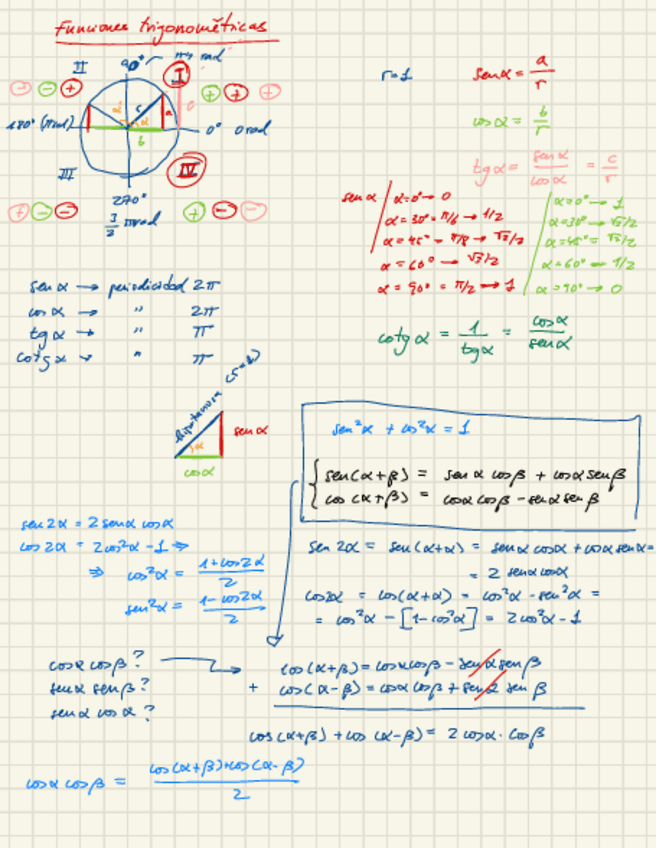 Funciones trigonométricas
II
90°
rad
I
r=1
sen α = a/r
180° (π rad)
α
b
a
0° 0 rad
cos α = b/r
III
IV
tg α = sen α/cos α = c/r
270°
3/2 π rad
sen α
α=0° → 0
α=30° = π/6 → 1/2
α=45° = π/8 → √2/2
α=60° → √3/2
α=90° = π/2 → 1
α=0° → 1
α=30° = √3/2
α=45° = √2/2
α=60° → 1/2
α=90° → 0
sen α → periodicidad 2π
cos α → " 2π
tg α → " π
cotg α → " π
cotg α = 1/tg α = cos α/sen α
hipotenusa (r=1)
α
sen α
cos α
sen²α + cos²α = 1
sen(α+β) = sen α cos β + cos α sen β
cos(α+β) = cos α cos β - sen α sen β
sen 2α = 2 sen α cos α
cos 2α = 2cos²α - 1 ⇒
⇒ cos²α = (1+cos2α)/2
sen²α = (1-cos2α)/2
sen 2α = sen(α+α) = sen α cos α + cos α sen α =
= 2 sen α cos α
cos2α = cos(α+α) = cos²α - sen²α =
= cos²α - [1-cos²α] = 2cos²α-1
cos α cos β ?
sen α sen β ?
sen α cos α ?
cos(α+β) = cos α cos β - sen α sen β
+ cos(α-β) = cos α cos β + sen α sen β
cos(α+β) + cos(α-β) = 2 cos α · cos β
cos α cos β = (cos(α+β)+cos(α-β))/2